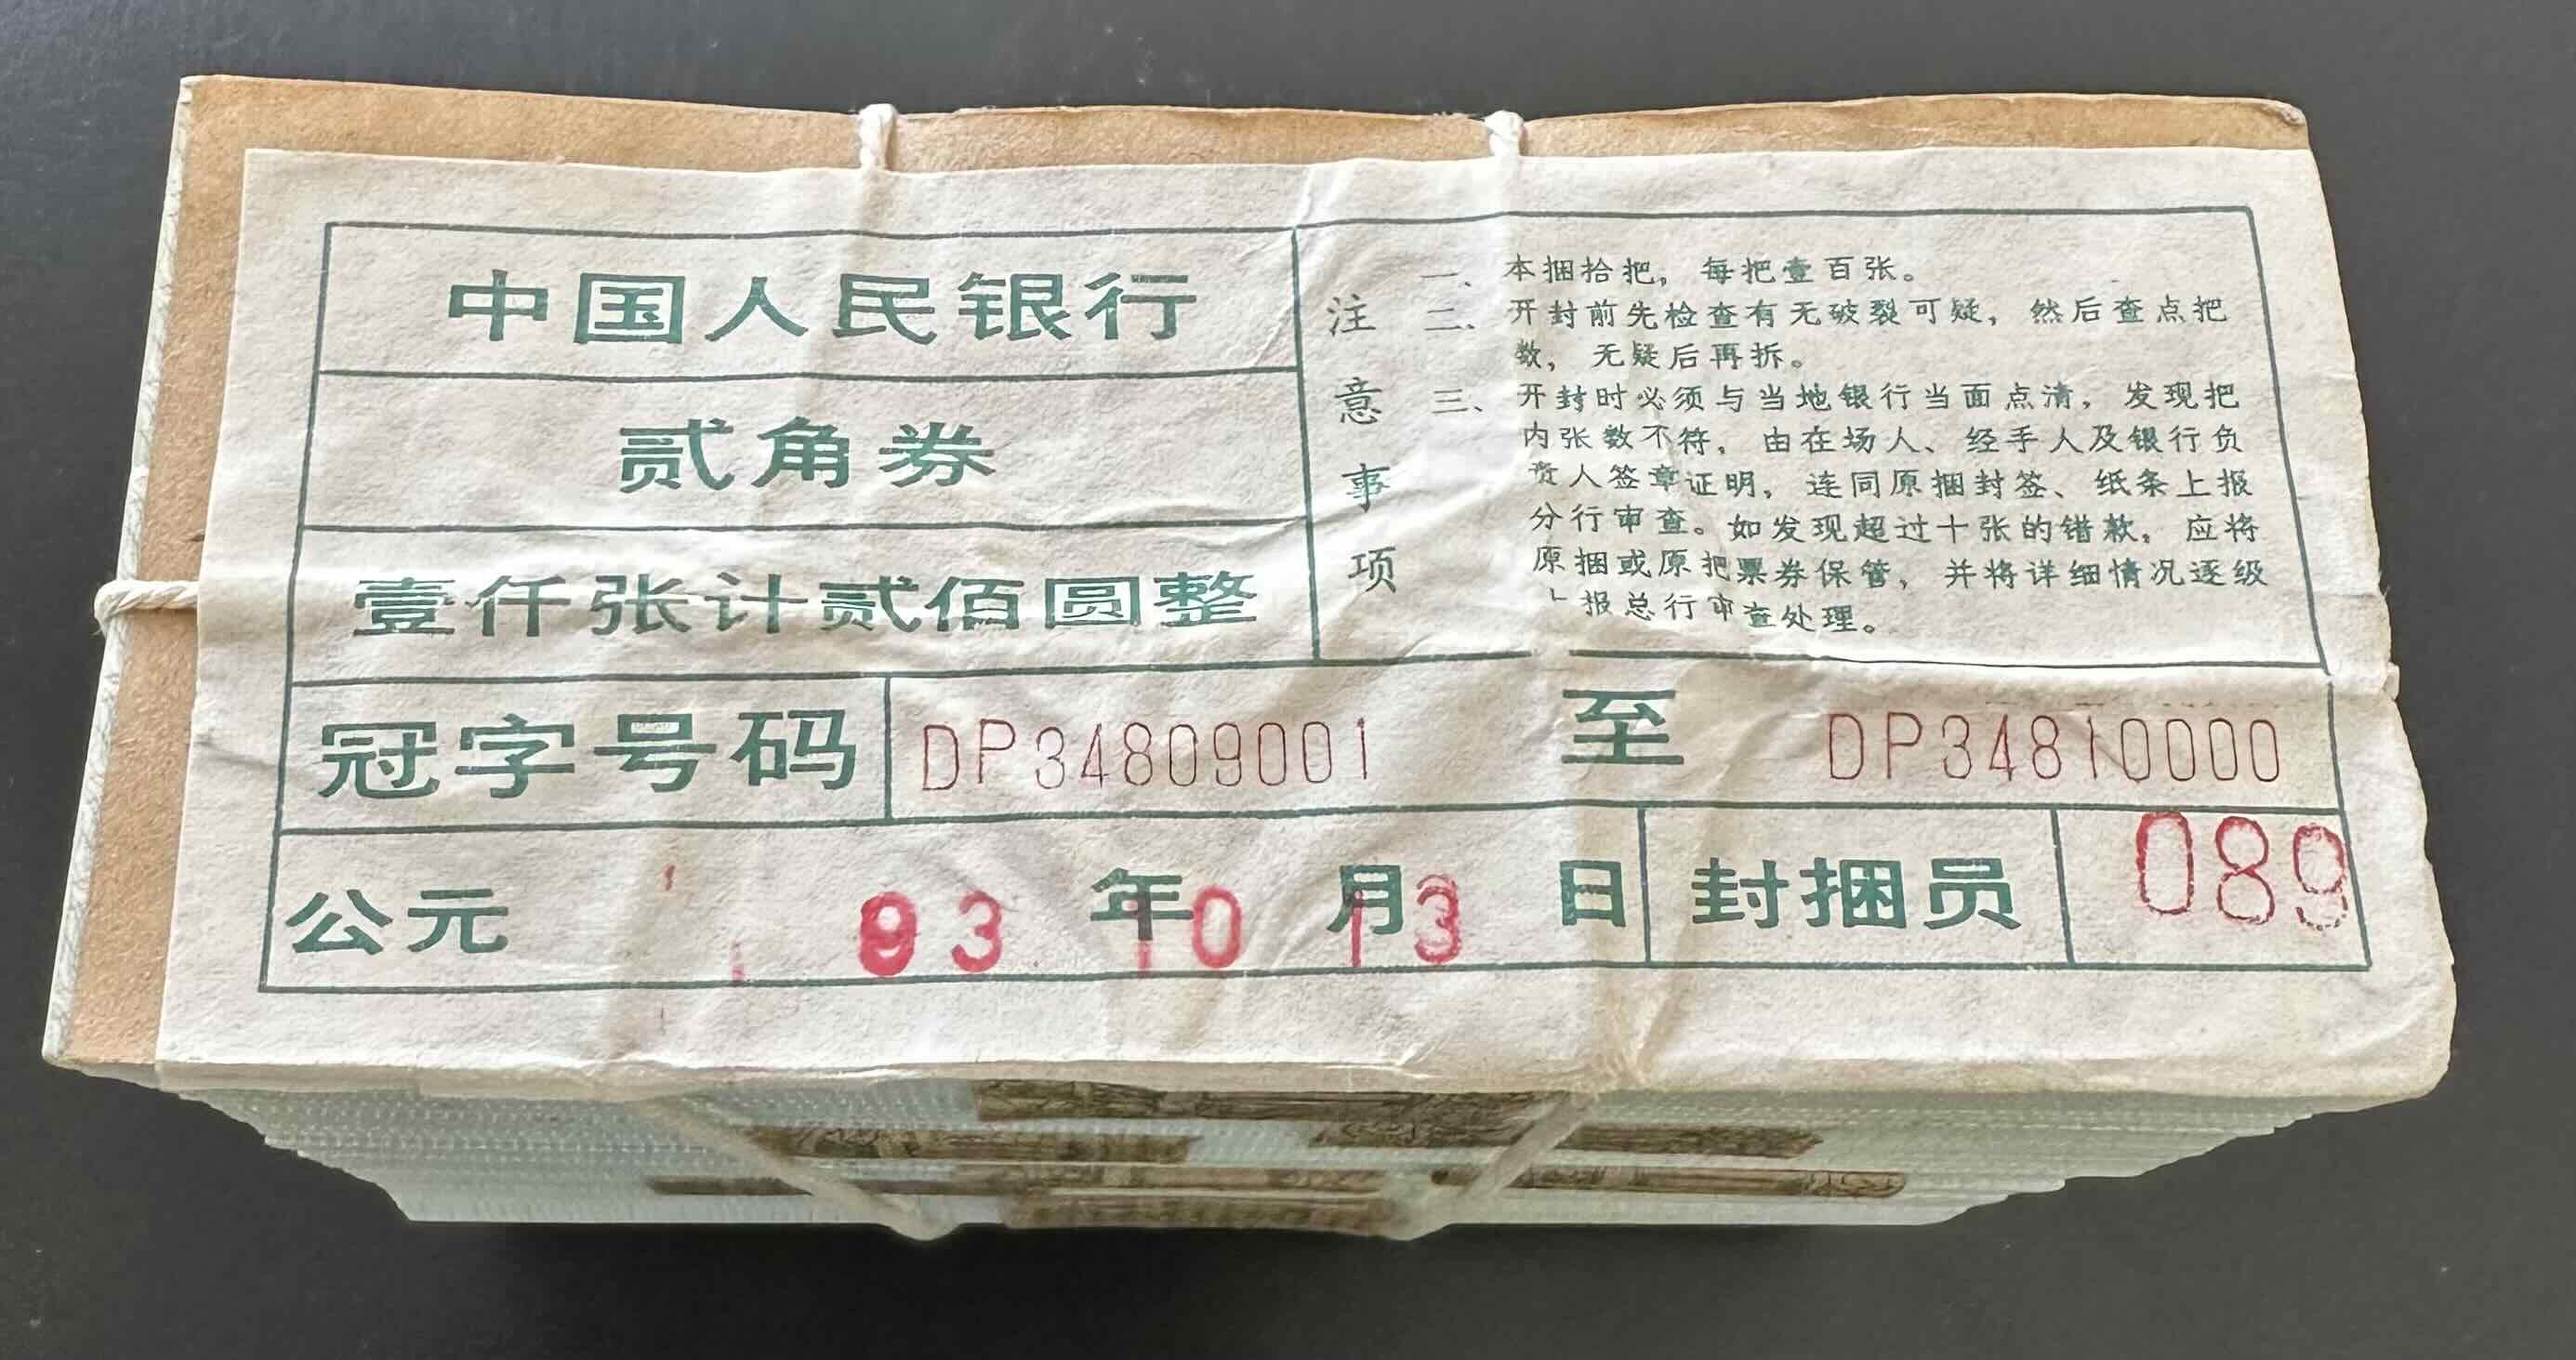 中国人民银行
贰角券
壹仟张计贰佰圆整
注意事项
一、本捆拾把，每把壹百张。
二、开封前先检查有无破裂可疑，然后查点把
数，无疑后再拆。
三、开封时必须与当地银行当面点清，发现把
内张数不符，由在场人、经手人及银行负
责人签章证明，连同原捆封签、纸条上报
分行审查。如发现超过十张的错款，应将
原捆或原把票券保管，并将详细情况逐级
上报总行审查处理。
冠字号码 DP34809001 至 DP34810000
公元 93 年 10 月 13 日 封捆员 089